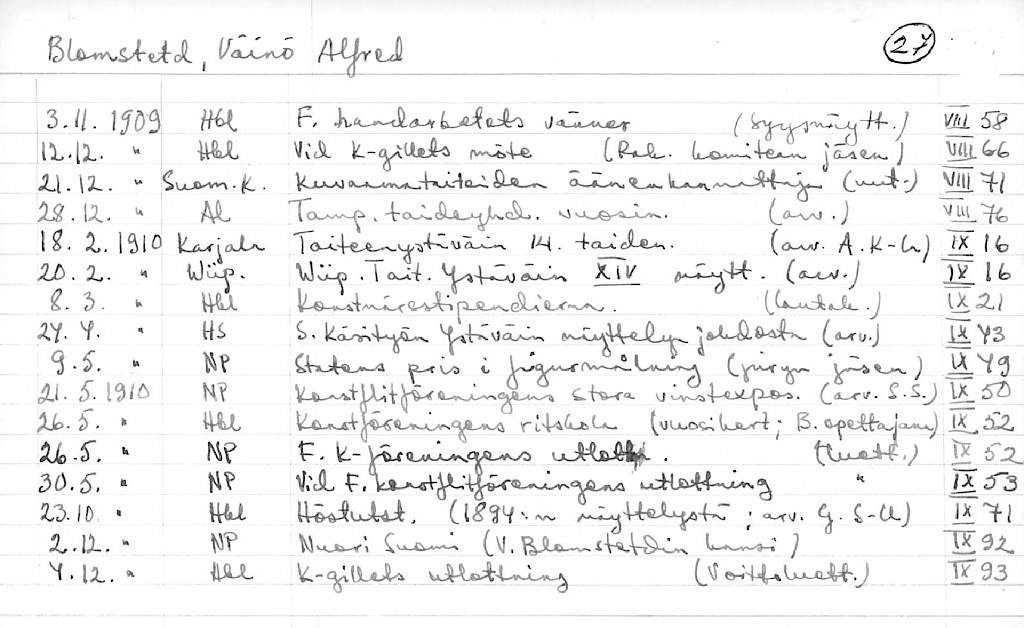 Blomstetd, Väinö Alfred 27
3.11. 1909 Hbl F. handarbetets vänner (Syysnäytt.) VIII 58
12.12. " Hbl Vid K-gillets möte (Rak. komitean jäsen) VIII 66
21.12. " Suom.K. Kuvaamataiteiden äänenkannattaja (uut.) VIII 71
28.12. " Al Tamp. taideyhd. vuosin. (arv.) VIII 76
18. 2. 1910 Karjala Taiteenystäväin 14. taiden. (arv. A.K-la) IX 16
20. 2. " Wiip. Wiip. Tait. Ystäväin XIV näytt. (arv.) IX 16
8. 3. " Hbl Konstnärsstipendierna. (lautak.) IX 21
27. 4. " HS S. Käsityön Ystäväin näyttelyn johdosta (arv.) IX 43
9.5. " NP Statens pris i figurmålning (juryn jäsen) IX 49
21. 5. 1910 NP Konstflitföreningens stora vinstexpos. (arv. S.S.) IX 50
26.5. " Hbl Konstföreningens ritskola (vuosikert; B. opettajana) IX 52
26.5. " NP F. K-föreningens utlottn. (luett.) IX 52
30.5. " NP Vid F. konstflitföreningens utlottning " IX 53
23.10. " Hbl Höstutst. (1894:n näyttelystä; arv. G. S-ll) IX 71
2.12. " NP Nuori Suomi (V. Blomstetdin kansi) IX 92
4.12. " Hbl K-gillets utlottning (Voittoluett.) IX 93